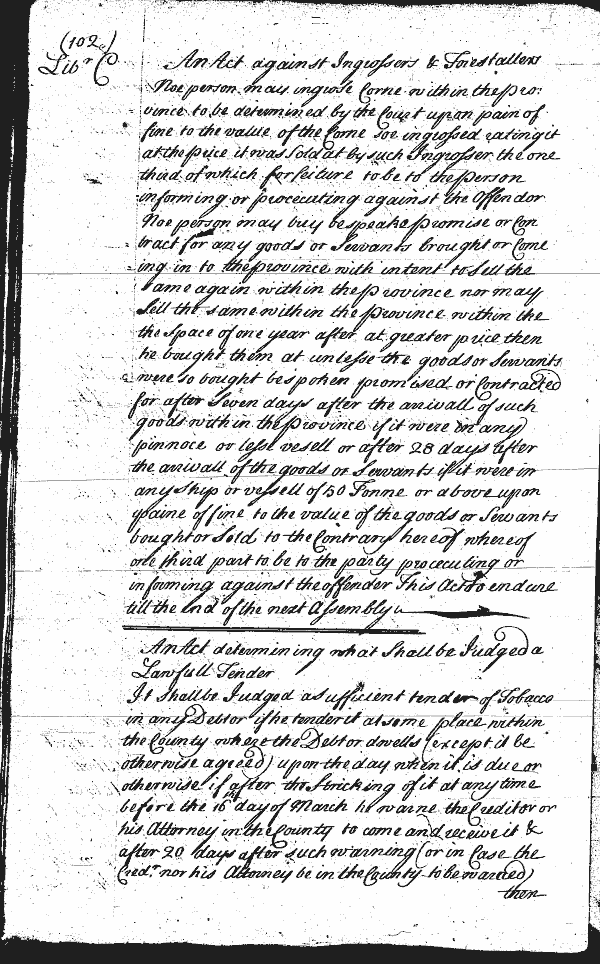 (102)
Libr C
An Act against Ingrossers & Forestallers
Noe person may ingrose Corne within the pro:
vince to be determined by the Court upon pain of
fine to the value of the Corne soe ingrossed rating it
at the price it was Sold at by such Ingrosser the one
third of which forfeiture to be to the person
informing or procecuting against the Offendor
Noe person may buy bespeake promise or Con
tract for any goods or Servants brought or Come
ing in to the province with intent to Sell the
same again within the province nor may
Sell the same within the province within the
the Space of one year after at greater price then
he bought them at unlesse the goods or Servants
were so bought bespoken promised or Contracted
for after Seven days after the arrivall of such
goods within the province if it were in any
pinnace or lesse vesell or after 28 days after
the arrivall of the goods or Servants if it were in
any Ship or vessell of 50 Tonne or above upon
paine of fine to the value of the goods or Servants
bought or Sold to the Contrary hereof whereof
one third part to be to the party procecuting or
informing against the offender This Act to endure
till the End of the next Assembly
An Act determining what Shall be Judged a
Lawfull Tender
It Shall be Judged a sufficient tender of Tobacco
in any Debtor if he tender it at some place within
the County where the Debtor dwells (except it be
otherwise agreed) upon the day when it is due or
otherwise if after the Stricking of it at any time
before the 16th day of March he warne the Creditor or
his Attorney in the County to come and receive it &
after 20 days after such warning (or in Case the
Credr nor his Attorney be in the County to be warned)
then